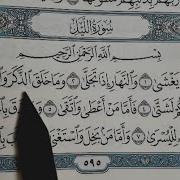 رَبُّهُم بِذَنۢبِهِمْ
سُورَةُ اللَّيْلِ
بِسْمِ اللَّهِ الرَّحْمَٰنِ الرَّحِيمِ
يَغْشَىٰ ١ وَالنَّهَارِ إِذَا تَجَلَّىٰ ٢ وَمَا خَلَقَ الذَّكَرَ
لَشَتَّىٰ ٤ فَأَمَّا مَنْ أَعْطَىٰ وَاتَّقَىٰ ٥
وَأَمَّا مَنۢ بَخِلَ وَاسْتَغْنَىٰ
٥٩٥